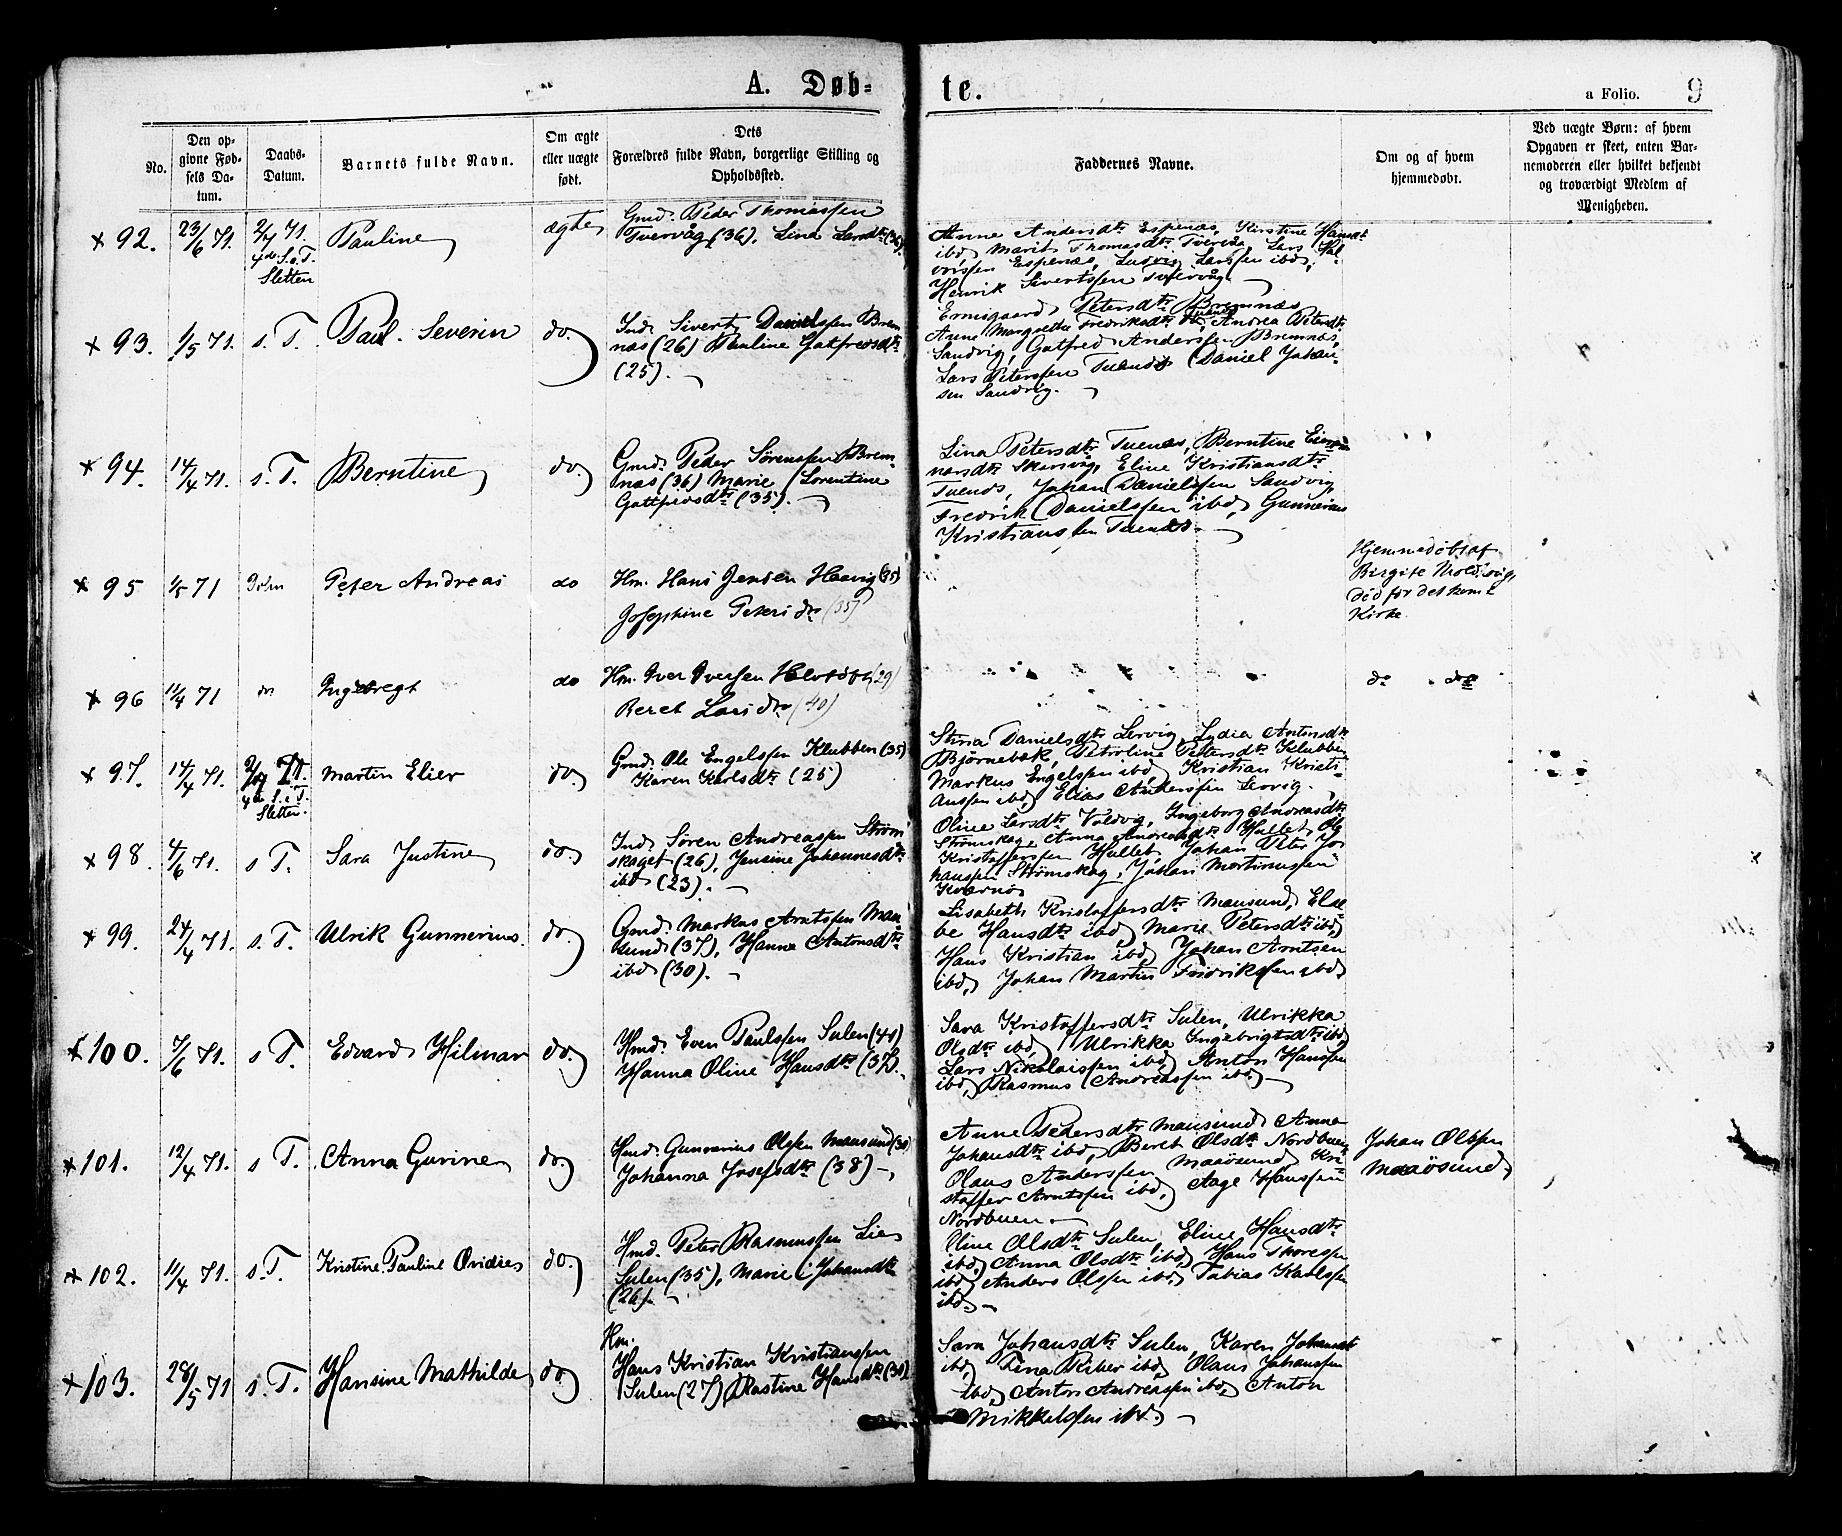 A. Døb-
te.
a Folio. 9
No.
Den op-
givne Fød-
sels Da-
tum.
Daabs-
Datum.
Barnets fulde Navn.
Om ægte
eller uægte
født.
Dets
Forældres fulde Navn, borgerlige Stilling og
Opholdssted.
Faddernes Navne.
Om og af hvem
hjemmedøbt.
Ved uægte Børn: af hvem
Opgaven er skeet, enten Bar-
nemoderen eller hvilket bekjendt
og troværdigt Medlem af
Menigheden.
× 92. 23/6 71. 2/7 71.
4de S. e. T.
Sletten
Pauline
ægte
Gmd. Peder Thomassen
Tvervåg (36), Lina Larsdtr (36).
Anne Andersdtr Espenæs, Kirstine Hansdtr
ibd, Marit Thomasdtr Lars Hal-
vorssen Espenæs, Ludvig Larssen ibd,
Henrik Sivertssen Tvervåg
× 93. 1/5 71. s. T. Paul Severin do.
Ind. Sivert Danielssen Brem-
næs (26) Pauline Gatfredsdtr
(25).
Petersdtr Bremnæs
Anne Margrethe Fredriksdtr Andrea Petersdtr
Sandvig, Gatfred Anderssen Bremnæs,
Lars Peterssen Daniel Johan-
sen Sandvig.
× 94. 14/4 71. s. T. Berntine do.
Gmd. Peder Sørenssen Brem-
næs (36) Marie Lorentine
Gatfredsdtr (35).
Lina Petersdtr Tuenæs, Berntine
narsdtr Skarsvåg, Eline Kristiansdtr
Johan Danielssen Sandvig,
Fredrik Danielssen ibd, Gunnerius
Kristianssen
× 95 1/5 71 Peter Andreas do
Hm. Hans Jensen (35)
Josephine Petersdtr (35)
Hjemmedøbt af
Birgite
død før det kom t.
Kirke
× 96 11/4 71 do Ingebregt do
Hm. Iver Iversen (29)
Beret Larsdtr (40)
do do
× 97. 14/4 71. 2/7 71.
4de S. e. T.
Sletten.
Martin Elier do.
Gmd. Ole Engelssen Klubben (35)
Karen Karlsdtr (25)
Stina Danielsdtr Lervig, Lydia Antonsdtr
Bjørnebek, Petroline Petersdtr Klubben
Markus Engelssen ibd, Kristian Kristi-
anssen ibd, Elias Anderssen Lervig.
× 98. 4/6 71. s T. Sara Justine do.
Ind. Søren Andreassen Strøm
skaget (26), Jensine Johannesdtr
ibd (23).
Oline Larsdtr Valdvig, Ingeborg Andreasdtr
Strømskag, Anna Andreasdtr Hallet, Ole
Kristofferssen Hallet, Johan Peter Jo-
hanssen Strømskag, Johan Mortinussen
Kværnø
× 99. 24/4 71. s. T. Ulrik Gunnerius. do.
Gmd. Markus Arntssen Mau-
sund (37), Hanna Antonsdtr
ibd (30).
Lisabeth Kristoffersdtr Mausund, Else-
be Hansdtr ibd, Marie Petersdtr ibd,
Hans Kristian ibd, Johan Arntsen
ibd, Johan Martin Fredrikssen ibd,
× 100. 7/6 71. s T. Edvard Hilmar do.
Hmd. Even Paulssen Sulen (41)
Hanna Oline Hansdtr (37).
Sara Kristoffersdtr Sulen, Ulrikka
Olsdtr ibd, Ulrikka Ingebrigtsdtr ibd,
Lars Nikolaissen ibd, Anton Hanssen
ibd, Rasmus Andreassen ibd.
× 101. 12/4 71. s T. Anna Gurine do.
Hmd. Gunnerius Olssen Mausund (30)
Johanna Josefsdtr (38).
Anne Pedersdtr Mausund, Anna
Johansdtr ibd, Beret Olsdtr Nordbuen
Olaus Anderssen Maaøsund, Kri-
stoffer Arntssen ibd, Aage Hanssen
Nordbuen.
Johan Olssen
Maaøsund
× 102. 11/4 71. s. T. Kristine Pauline Ovidie do.
Hmd. Peter Rasmussen Lie
Sulen (35), Marie Johansdtr
(26).
Oline Olsdtr Sulen, Eline Hansdtr
ibd, Anna Olsdtr ibd, Hans Thoressen
ibd, Anders Olssen ibd, Tobias Karlssen
ibd.
× 103. 28/5 71 s. T. Hansine Mathilde do.
Hm.
Hans Kristian Kristianssen
Sulen (27), Rastine Hansdtr (30)
Sara Johansdtr Sulen, Karen Johansdtr
ibd, Tina Riber ibd, Olaus Johanssen
ibd, Anton Andreassen ibd, Anton
Mikkelssen ibd.